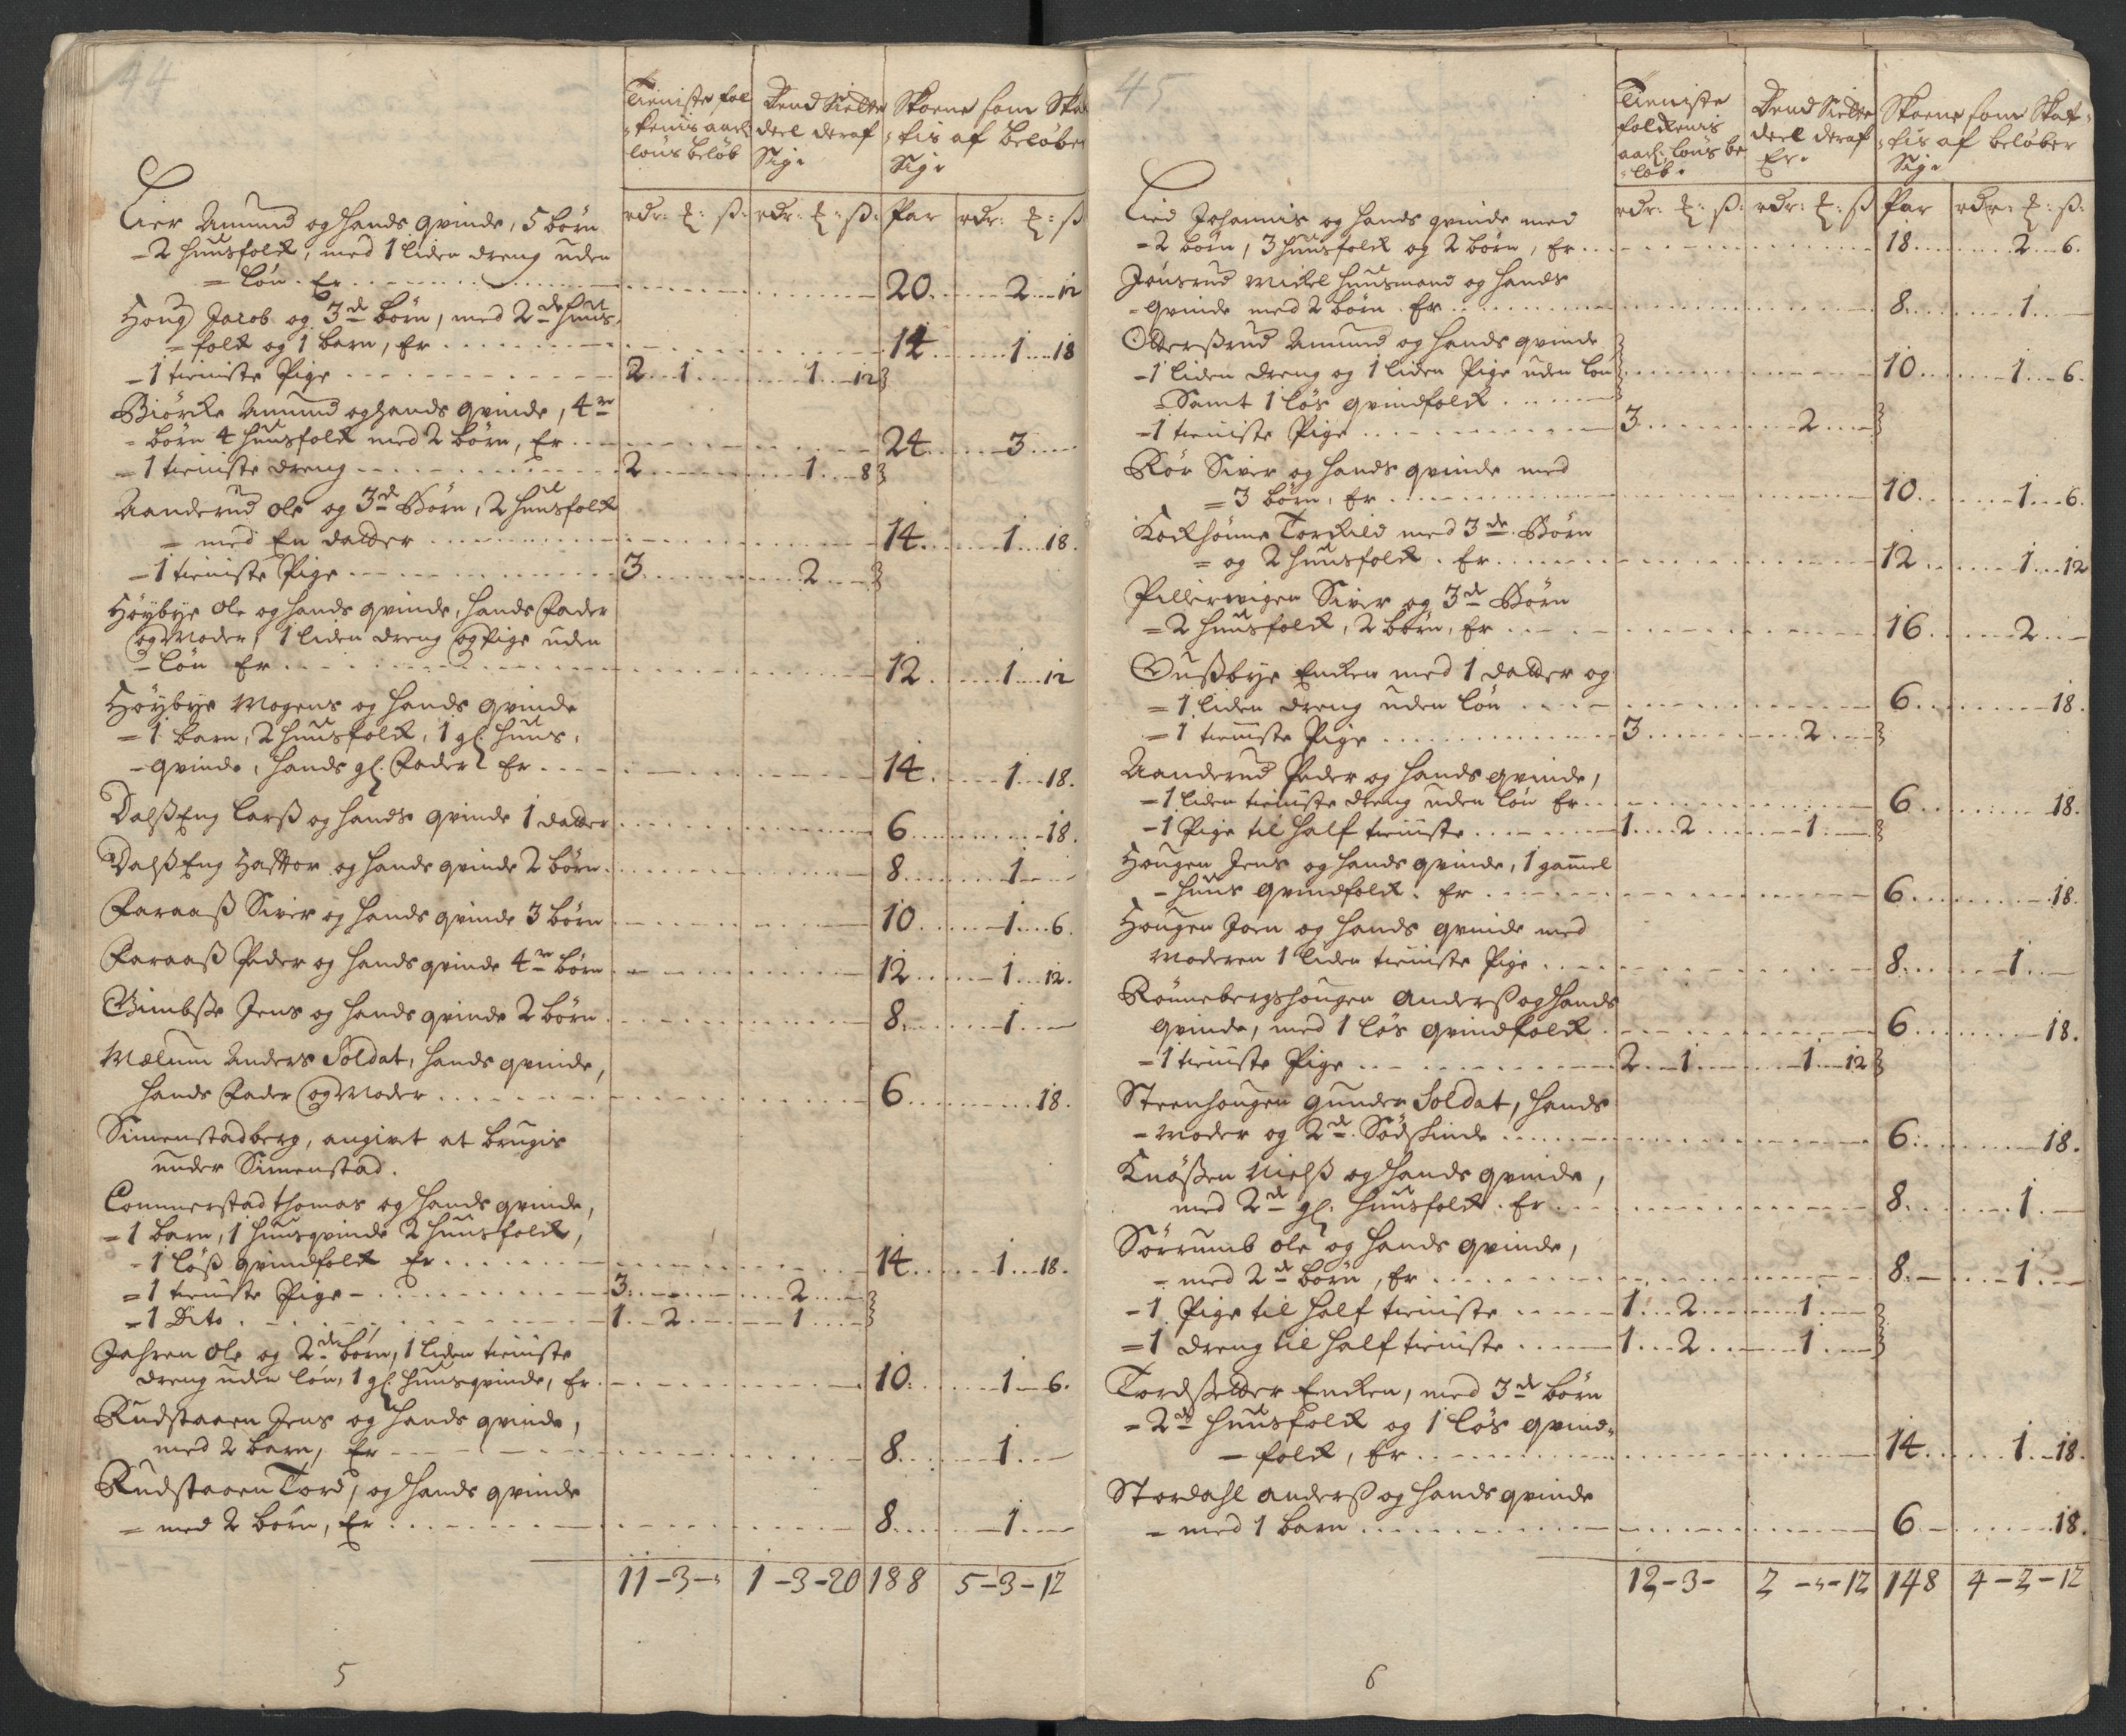 44
Tieniste fol
kenis aarl:
löns beløb
Dend Siette
deel deraf
Sig:
Skoene som Ska
tis af beløber
Sig:
rdr: : ß: rdr: : ß: Par rdr: : ß
Lier Amund og hands qvinde, 5 børn
- 2 huusfolk, med 1 liden dreng uden
= løn. Er 20 2 12
Houg Jacob og 3de børn, med 2de huus
= folk og 1 barn, Er 14 1 18
- 1 tieniste Pige 2 1 1 12
Biörke Amund og hands qvinde, 4re
- børn 4 huusfolk med 2 børn, Er 24 3
- 1 tieniste dreng 2 1 8
Aanderud Ole og 3de Børn, 2 huusfolk
= med En datter 14 1 18.
- 1 tieniste Pige 3 2
Höybye Ole og hands qvinde, hands Fader
og Moder, 1 liden dreng og Pige uden
- løn Er 12 1 12
Höybye Mogens og hands qvinde
- 1 barn, 2 huusfolk, 1 gl. huus,
- qvinde, hands gl. Fader Er 14 1 18.
DalßEng Larß og hands qvinde 1 datter 6 18.
DalßEng Hafftor og hands qvinde 2 børn 8 1
Faraaß Siver og hands qvinde 3 børn 10 1 6.
Faraaß Peder og hands qvinde 4re børn 12 1 12.
Gimbße Jens og hands qvinde 2 børn 8 1
Mælum Anders Soldat, hands qvinde,
hands Fader og Moder 6 18.
Simenstadberg, angivet at brugis
under Simenstad.
Commerstad Thomas og hands qvinde,
- 1 barn, 1 huusqvinde 2 huusfolk,
- 1 löß qvindfolk Er 14 1 18.
= 1 tieniste Pige 3 2
= 1 Dito 1 2 1
Jahren Ole og 2de børn, 1 liden tieniste
dreng uden løn, 1 gl. huusqvinde, Er 10 1 6.
Rudstaaen Jens og hands qvinde,
med 2 barn, Er 8 1
Rudstaaen Tord, og hands qvinde
= med 2 børn, Er 8 1
11 - 3 - 1 - 3 - 20 188 5 - 3 - 12
5
45
Tieniste
folkenis
aarl: löns be
løb.
Dend Siette
deel deraf
Er.
Skoene som Skat
tis af beløber
Sig.
rdr: : ß: rdr: : ß Par rdr: : ß:
Lied Johannis og hands qvinde med
- 2 børn, 3 huusfolk og 2 børn, Er 18 2 6.
Jonsrud Mickel huusmand og hands
- qvinde med 2 børn. Er 8 1
Otterßrud Amund og hands qvinde
- 1 liden dreng og 1 liden Pige uden løn 10 1 6.
= Samt 1 løs qvindfolk
- 1 tieniste Pige 3 2
Rör Siver og hands qvinde med
= 3 børn, Er 10 1 6.
Kockhönne Torckild med 3de Børn
= og 2 huusfolk. Er 12 1 12
Pillerwigen Siver og 3de Børn
= 2 huusfolk, 2 børn, Er 16 2
Gußbye Encken med 1 datter og
= 1 liden dreng uden løn 6 18.
= 1 tieniste Pige 3 2
Aanderud Peder og hands qvinde,
- 1 liden tieniste dreng uden løn Er 6 18.
- 1 Pige til half tieniste 1 2 1
Hougen Jens og hands qvinde, 1 gammel
- huus qvindfolk. Er 6 18.
Hougen Joen og hands qvinde med
Moderen 1 liden tieniste Pige 8 1
Rönnebergshougen Anderß og hands
qvinde, med 1 løs qvindfolk 6 18.
- 1 tieniste Pige 2 1 1 12
Steenhougen Gunder Soldat, hands
- Moder og 2de Södskinde 6 18.
Knößen Nielß og hands qvinde,
med 2de gl. huusfolk. Er 8 1
Sörrumb Ole og hands qvinde,
- med 2de børn, Er 8 1
- 1 Pige til half tieniste 1 2 1
= 1 dreng til half tieniste 1 2 1
Tordßetter Encken, med 3de børn
- 2de huusfolk og 1 løs qvind
- folk, Er 14 1 18.
Stordahl Anderß og hands qvinde
- med 1 barn 6 18.
12 - 3 - 2 - - 12 148 4 - 2 - 12
6